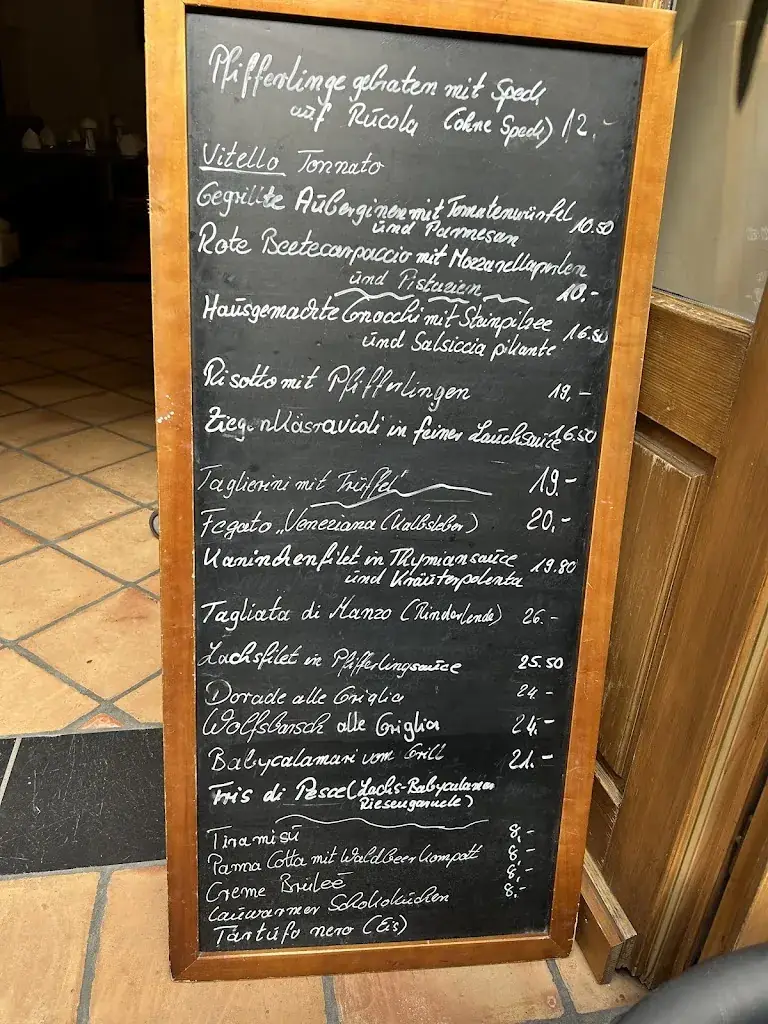 Pfifferlinge gebraten mit Speck
auf Rucola (ohne Speck) 12.-
Vitello Tonnato
Gegrillte Auberginen mit Tomatenwürfel
und Parmesan 10.50
Rote Beetecarpaccio mit Mozzarellaperlen
und Pistazien 10.-
Hausgemachte Gnocchi mit Steinpilze 16.50
und Salsiccia pikante
Risotto mit Pfifferlingen 19,-
Ziegenkäsravioli in feiner Lauchsauce 16.50
Taglierini mit Trüffel 19.-
Fegato „Veneziana (Kalbsleber) 20,-
Kaninchenfilet in Thymiansauce 19.80
und Kräuterpolenta
Tagliata di Manzo (Rinderlende) 26.-
Lachsfilet in Pfifferlingsauce 25.50
Dorade alle Griglia 24-
Wolfsbarsch alle Griglia 24.-
Babycalamari vom Grill 21.-
Tris di Pesce (Lachs-Babycalamar
Riesengarnele)
Tiramisú 8,-
Panna Cotta mit Waldbeerkompott 8,-
Creme Bruleé 8,-
Lauwarmer Schokokuchen 8,-
Tartufo nero (Eis)